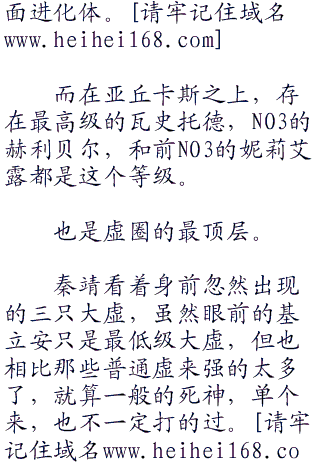 面进化体。[请牢记住域名
www.heihei168.com]
而在亚丘卡斯之上，存
在最高级的瓦史托德，NO3的
赫利贝尔，和前NO3的妮莉艾
露都是这个等级。
也是虚圈的最顶层。
秦靖看着身前忽然出现
的三只大虚，虽然眼前的基
立安只是最低级大虚，但也
相比那些普通虚来强的太多
了，就算一般的死神，单个
来，也不一定打的过。[请牢
记住域名www.heihei168.co